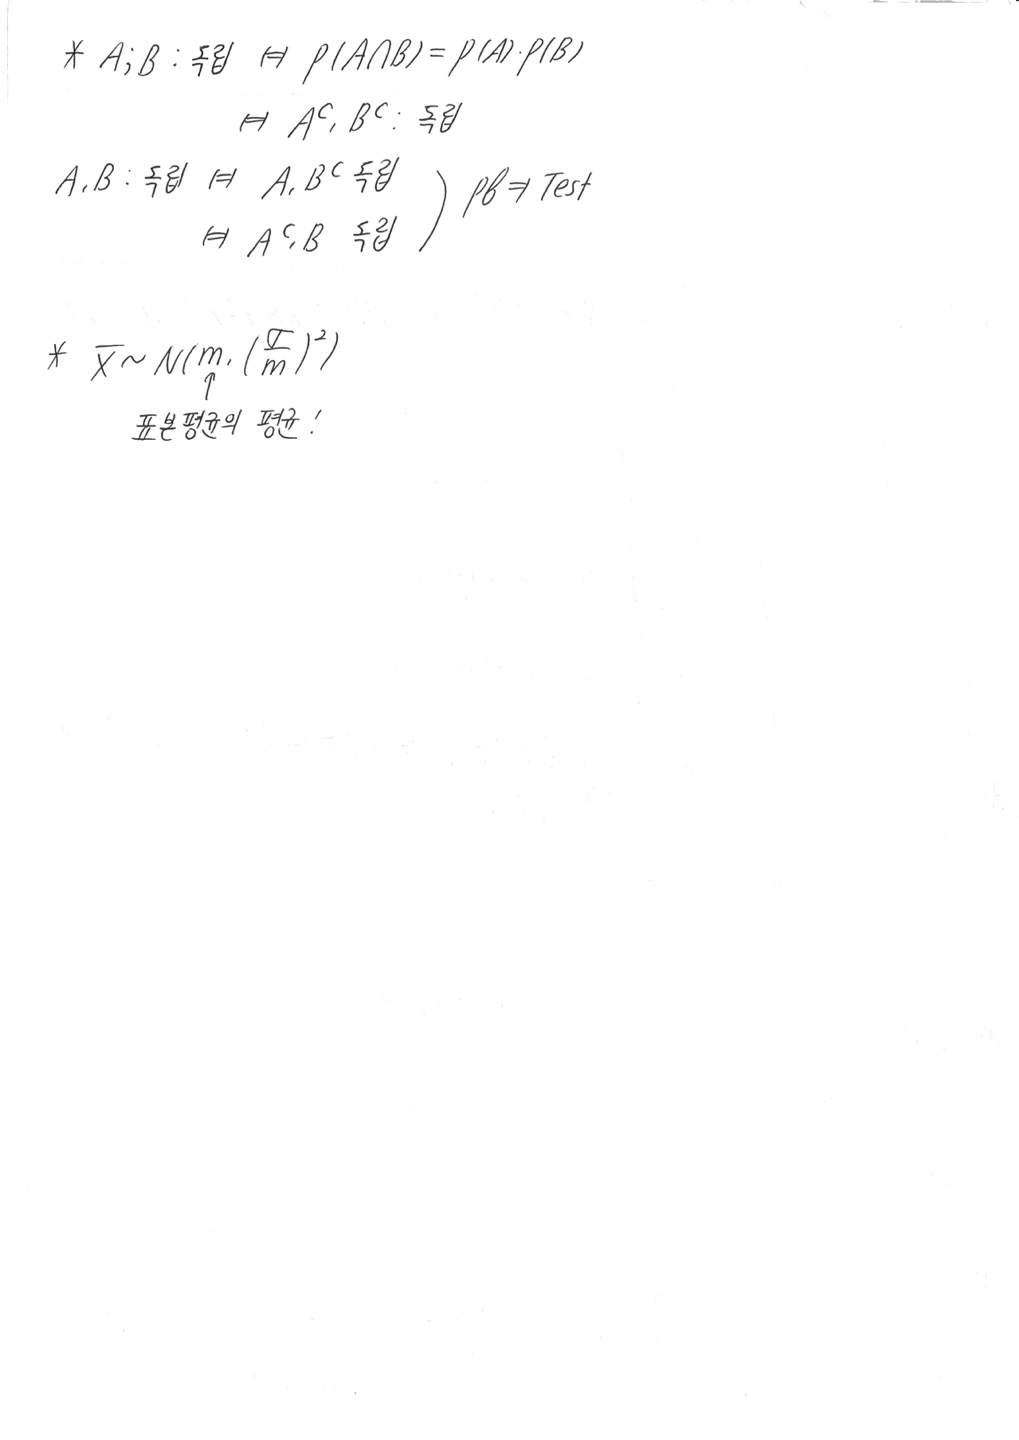 * A, B : 독립 ⇔ P(A∩B) = P(A)·P(B)
⇔ A^c, B^c : 독립
A, B : 독립 ⇔ A, B^c 독립
⇔ A^c, B 독립
pb ⇒ Test
* X̄ ~ N(m, (σ/m)²)
↑
표본평균의 평균!